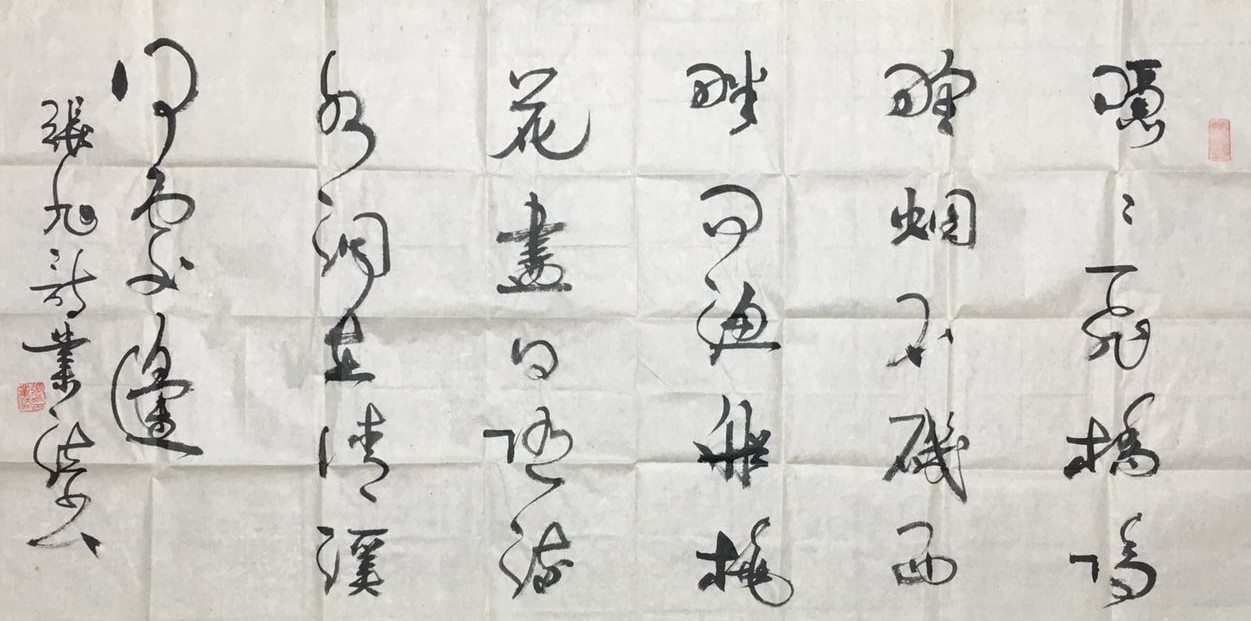 隱〻飛橋隔
野烟石磯西
畔問漁船桃
花盡日隨流
水洞在清溪
何處邊
張旭詩業